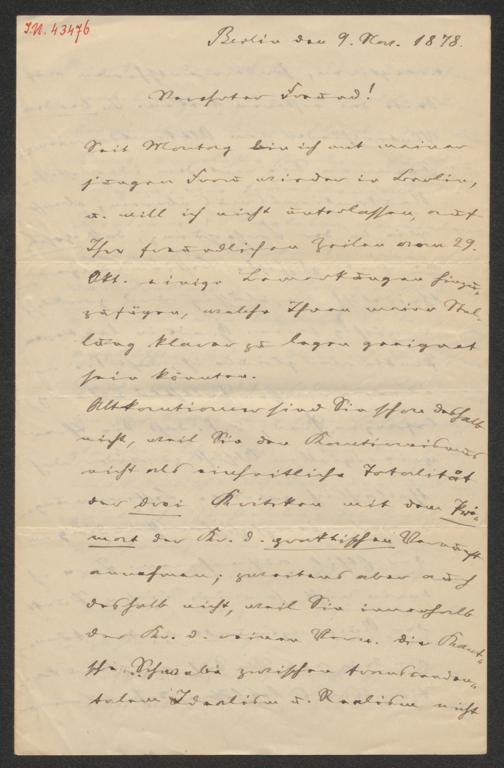 I.N. 43476
Berlin den 9. Nov. 1878.
Verehrter Freund!
Seit Montag bin ich mit meiner
jungen Frau wieder in Berlin,
u. will ich nicht unterlassen, auf
Ihre freundlichen Zeilen vom 29.
Okt. einige Bemerkungen hinzu-
zufügen, welche Ihnen meine Stel-
lung klarer zu legen geeignet
sein könnten.
Altkantianer sind Sie schon deshalb
nicht, weil Sie den Kantianismus
nicht als einheitliche Totalität
der drei Kritiken mit dem Pri-
mat der Kr. d. praktischen Vernunft
annehmen; zweitens aber auch
deshalb nicht, weil Sie innerhalb
der Kr. d. reinen Vern. die Kant-
sche zwischen transcenden-
talem Idealism u. Realism nicht